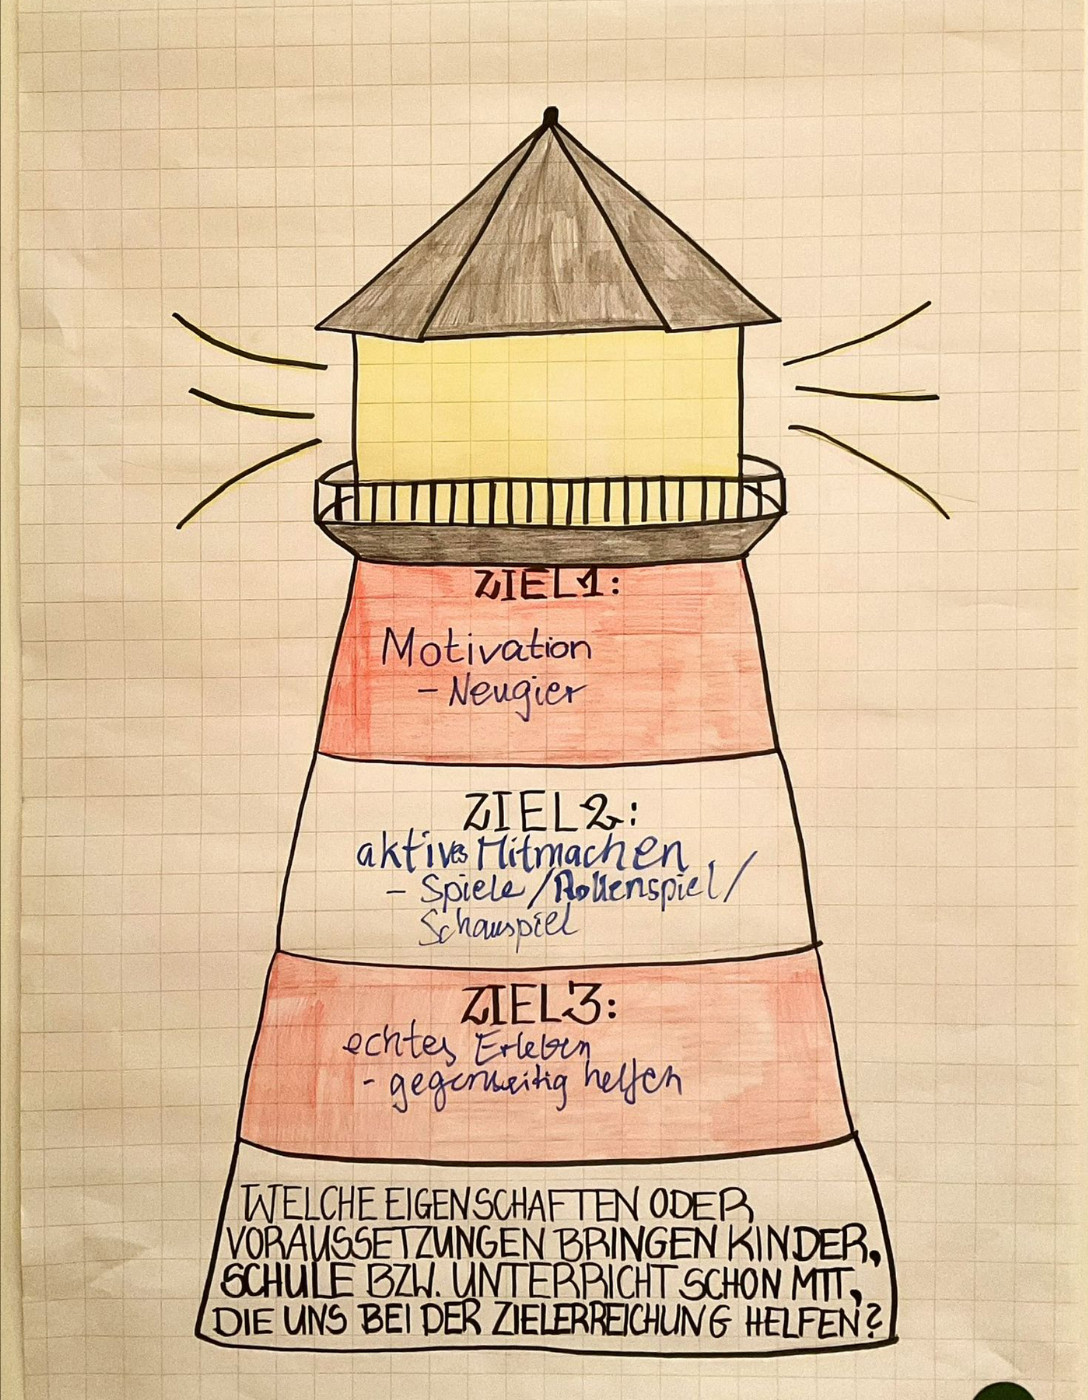 ZIEL1:
Motivation
- Neugier
ZIEL2:
aktives Mitmachen
- Spiele/Rollenspiel/
Schauspiel
ZIEL3:
echtes Erleben
- gegenseitig helfen
WELCHE EIGENSCHAFTEN ODER
VORAUSSETZUNGEN BRINGEN KINDER,
SCHULE BZW. UNTERRICHT SCHON MIT,
DIE UNS BEI DER ZIELERREICHUNG HELFEN?